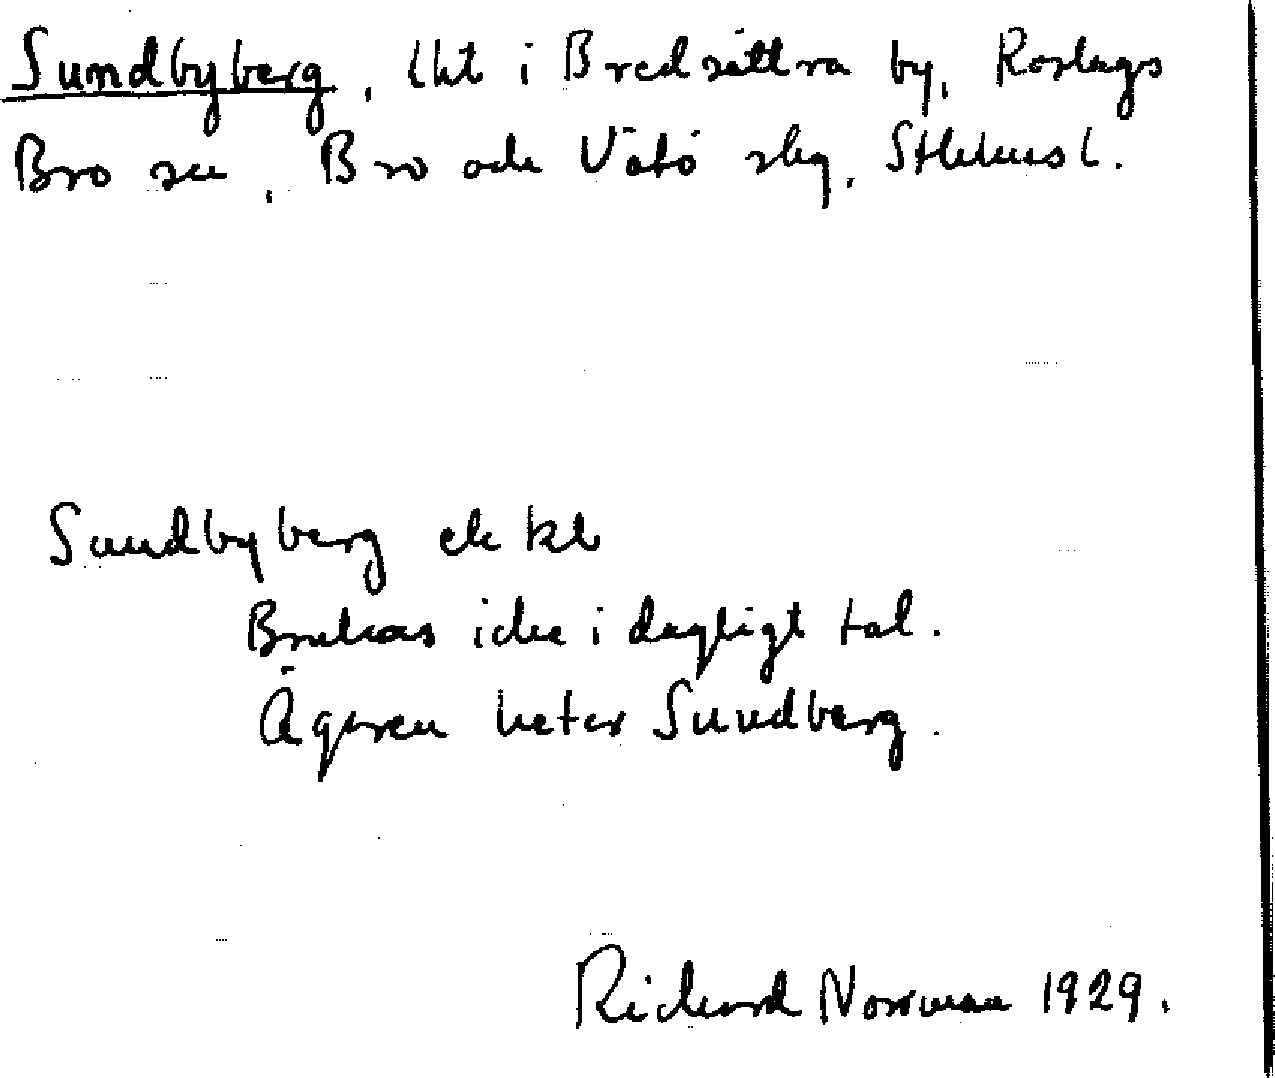 Sundbyberg, lht i Bredsättra by, Roslags
Bro sn, Bro och Vätö skg, Sthlms l.
Sundbyberg ek kt
Brukas icke i dagligt tal.
Ägaren heter Sundberg.
Richard Norrman 1929.